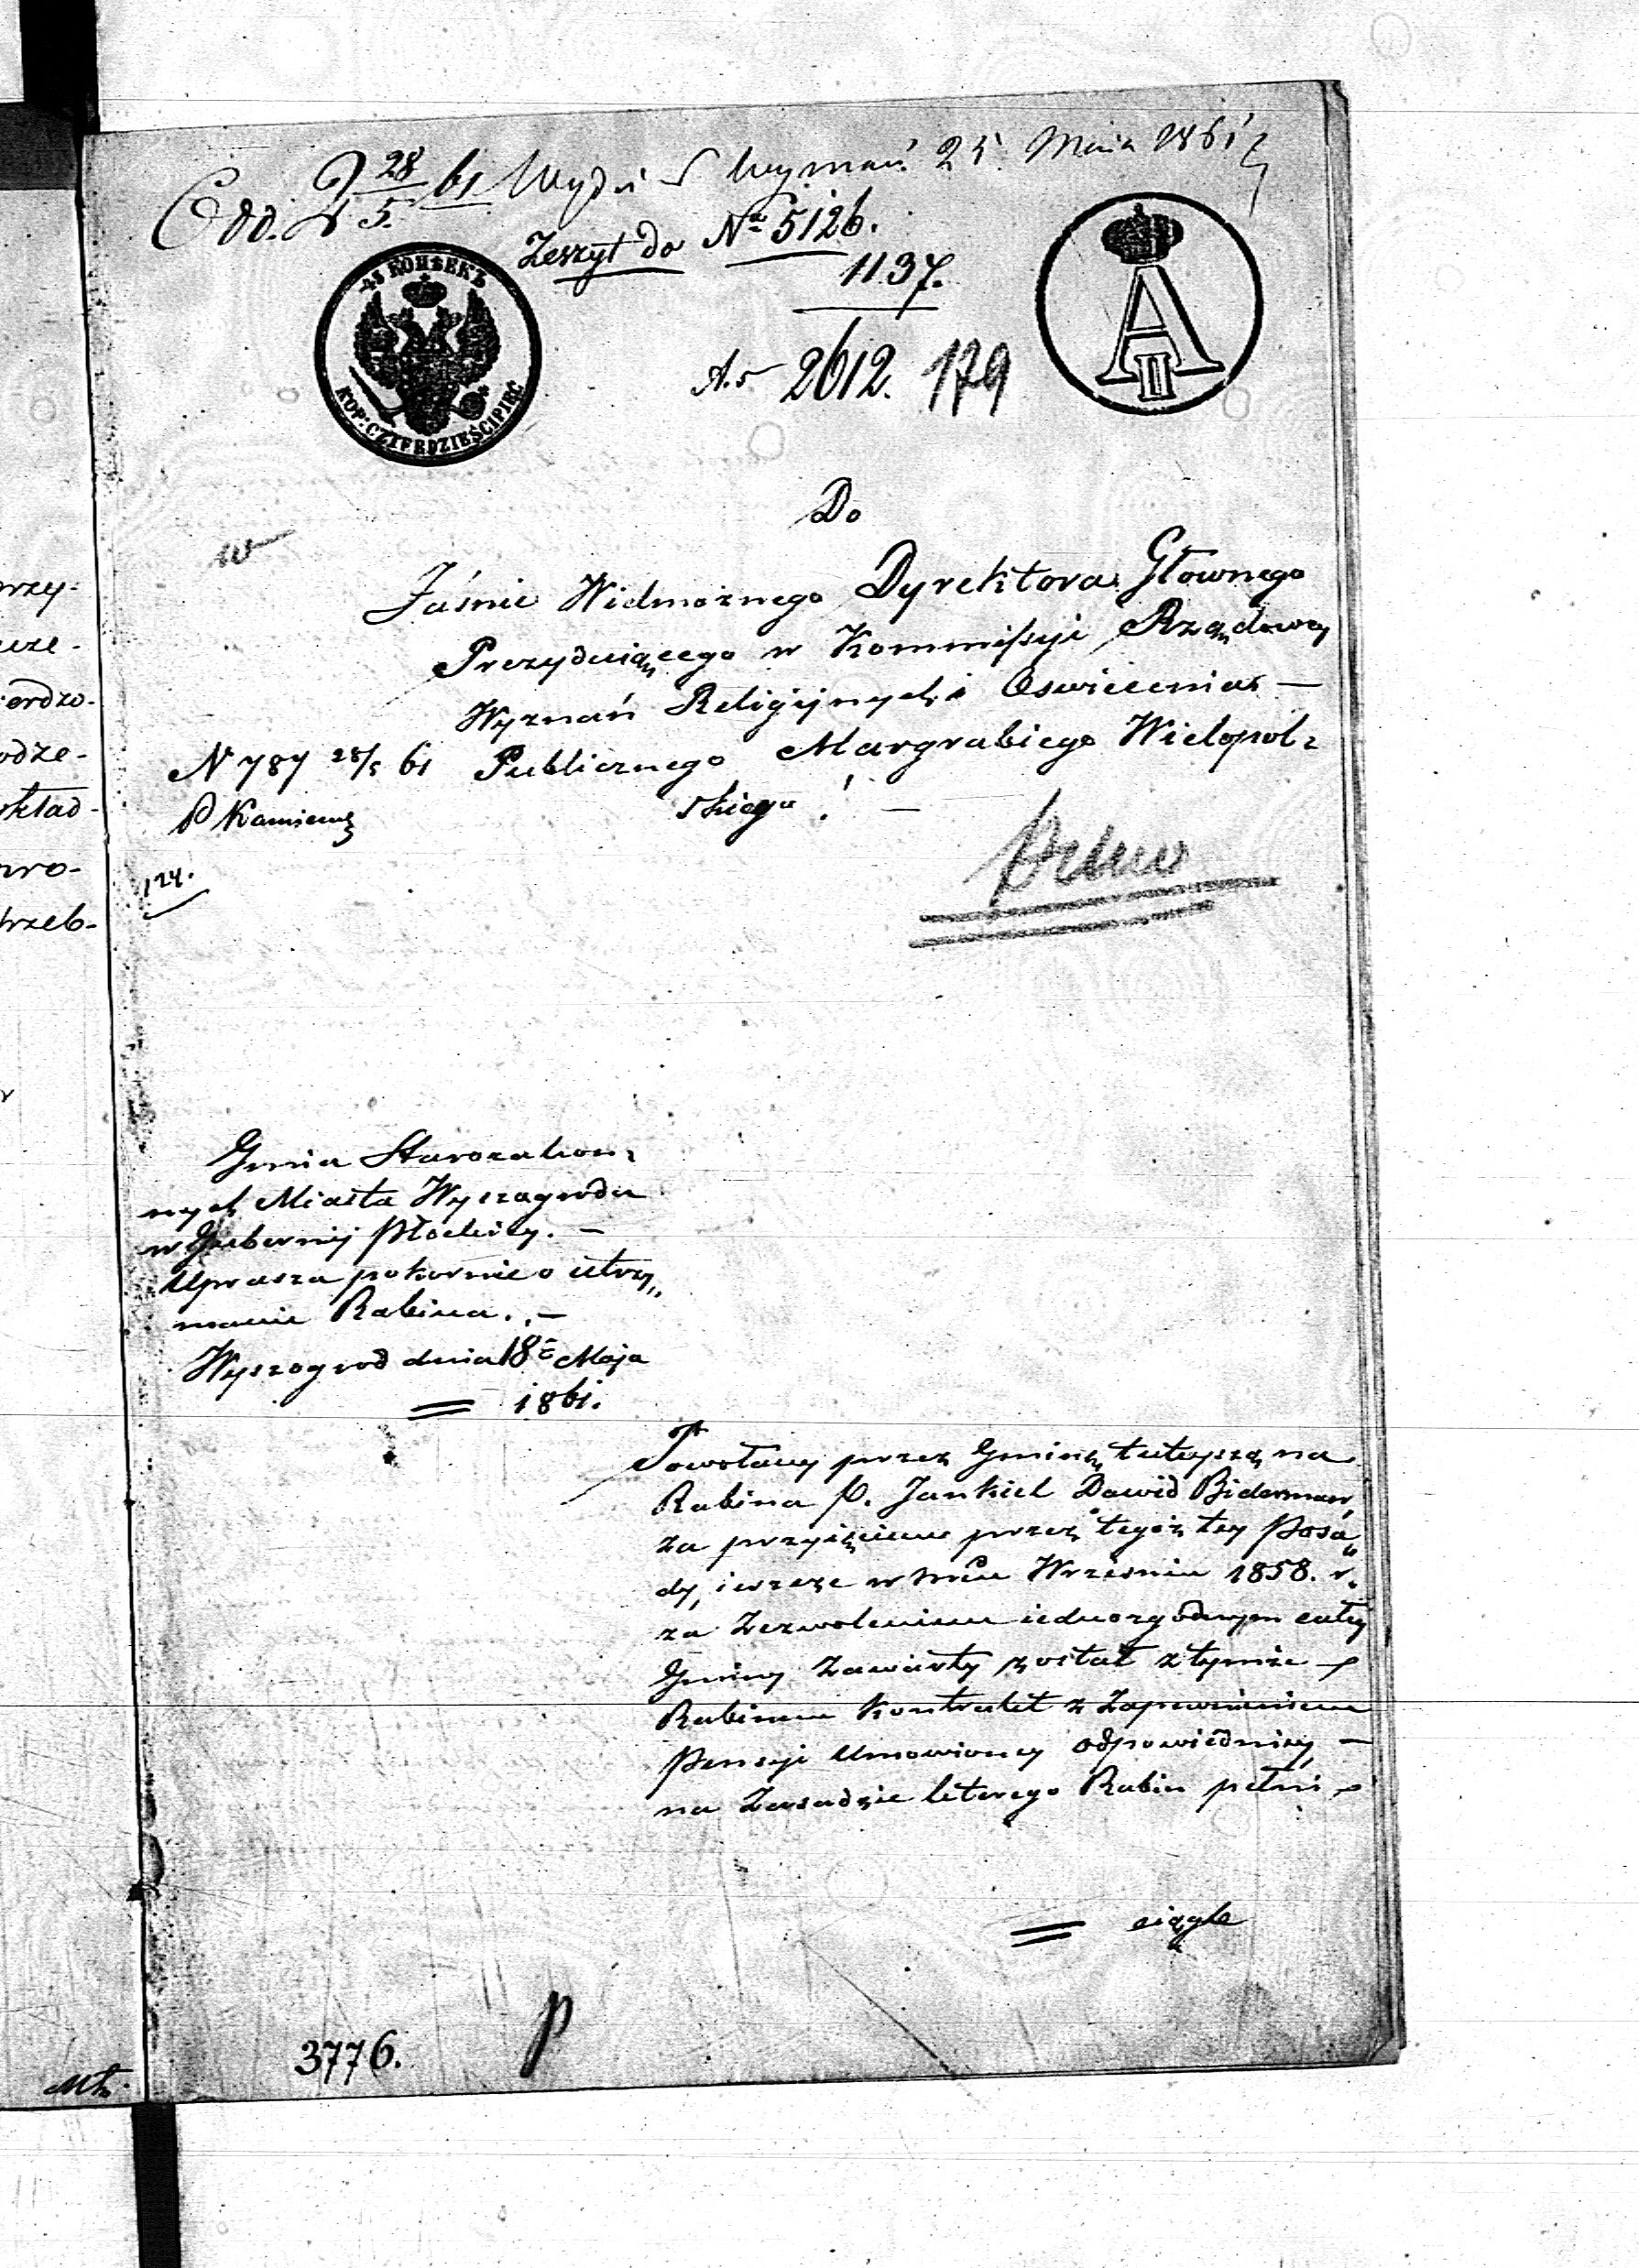 Odd. 28/5 61 Wydz. Wyznań 25 Maia 1861
Zeszyt do No 5126.
1137.
2612. 179
45 КОПѢЕКЪ
KOP: CZTERDZIEŚCI PIĘĆ
A II
Do
Jaśnie Wielmożnego Dyrektora Głownego
Prezyduiącego w Kommissyi Rządowey
Wyznań Religijnych i Oswiecenia —
N 787 28/5 61
Publicznego Margrabiego Wielopol-
skiego! —
P Kamiensk
124.
Gmina Starozakon-
nych Miasta Wyszogrodu
w Gubernij Płockiey. —
Uprasza pokornie o utrzy„
manie Rabina. —
Wyszogrod dnia 18 Maja
1861.
Powołany przez Gminę tuteyszą na
Rabina P. Jankiel Dawid Biderman,
za przyięciem przez tegoż tey Posa„
dy, ieszcze w mcu Wrześniu 1858. r.
za Zezwoleniem iednozgodnym całey
Gminy Zawarty został z tymże
Rabinem Kontrakt z Zapewnieniem
Pensyi Umowioney odpowiedniey —
na Zasadzie ktorego Rabin pełni
ciągle
3776.
p
rzy-
cze-
ierdzo-
odze-
kład-
wo-
trzeb-